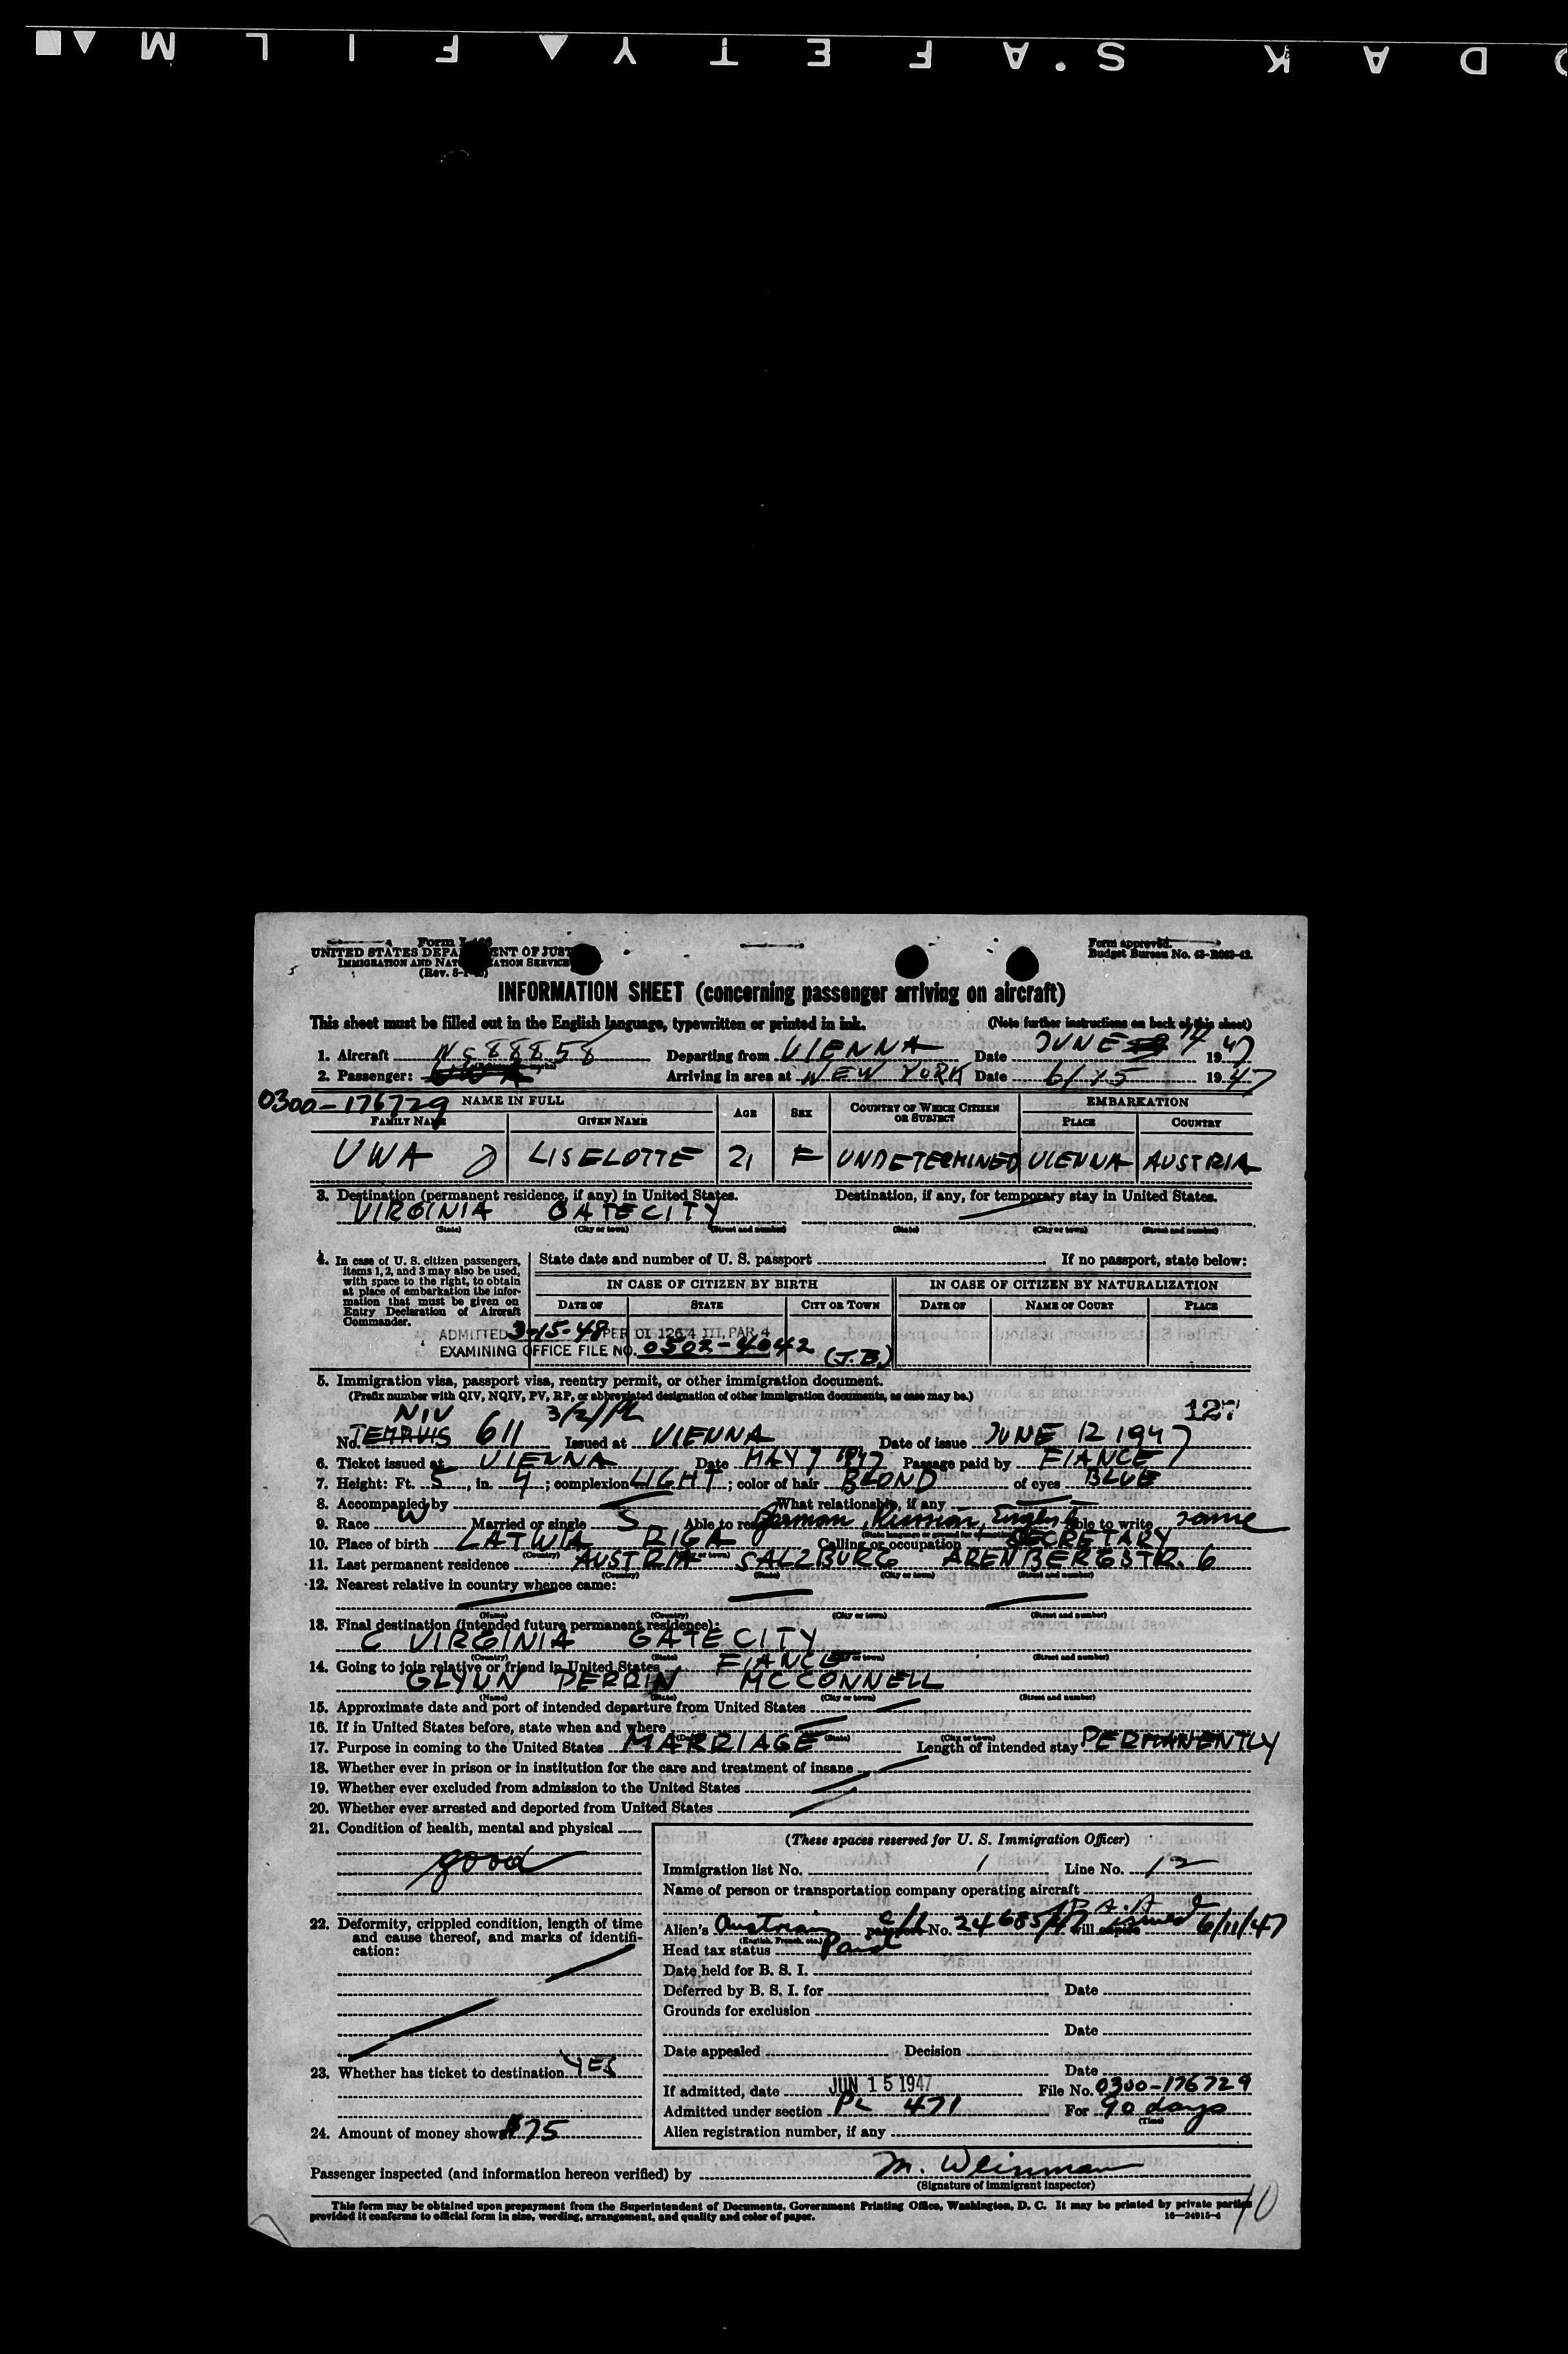 KODAK SAFETY FILM
Form I-466
UNITED STATES DEPARTMENT OF JUSTICE
IMMIGRATION AND NATURALIZATION SERVICE
Form approved.
Budget Bureau No. 43-R063-42.
INFORMATION SHEET (concerning passenger arriving on aircraft)
This sheet must be filled out in the English language, typewritten or printed in ink. (Note further instructions on back of this sheet)
1. Aircraft Nc 88858 Departing from VIENNA Date JUNE 14 1947
2. Passenger: Arriving in area at NEW YORK Date 6/15 1947
0300-176729 NAME IN FULL AGE SEX COUNTRY OF WHICH CITIZEN OR SUBJECT EMBARKATION
FAMILY NAME GIVEN NAME PLACE COUNTRY
UWA LISELOTTE 21 F UNDETERMINED VIENNA AUSTRIA
3. Destination (permanent residence, if any) in United States. Destination, if any, for temporary stay in United States.
VIRGINIA GATECITY
(State) (City or town) (Street and number) (State) (City or town) (Street and number)
4. In case of U. S. citizen passengers, items 1, 2, and 3 may also be used, with space to the right, to obtain at place of embarkation the information that must be given on Entry Declaration of Aircraft Commander.
State date and number of U. S. passport If no passport, state below:
IN CASE OF CITIZEN BY BIRTH IN CASE OF CITIZEN BY NATURALIZATION
DATE OF STATE CITY OR TOWN DATE OF NAME OF COURT PLACE
ADMITTED 3-15-48 PER OI 126.4 III, PAR. 4
EXAMINING OFFICE FILE NO. 0502-4042 (J.B.)
5. Immigration visa, passport visa, reentry permit, or other immigration document.
(Prefix number with QIV, NQIV, PV, RP, or abbreviated designation of other immigration documents, as case may be.)
NIV 3/2/ 127
No. 611 Issued at VIENNA Date of issue JUNE 12 1947
6. Ticket issued at VIENNA Date MAY 7 1947 Passage paid by FIANCE
7. Height: Ft. 5, in. 4; complexion LIGHT; color of hair BLOND of eyes BLUE
8. Accompanied by What relationship, if any
9. Race W Married or single S Able to read German, Russian, English Able to write same
10. Place of birth LATWIA RIGA Calling or occupation SECRETARY
11. Last permanent residence AUSTRIA SALZBURG ARENBERGSTR. 6
(Country) (State) (City or town) (Street and number)
12. Nearest relative in country whence came:
(Name) (Country) (City or town) (Street and number)
13. Final destination (intended future permanent residence):
C VIRGINIA GATE CITY
(Country) (State) (City or town) (Street and number)
14. Going to join relative or friend in United States FIANCE
GLYUN PERRIN MCCONNELL
(Name) (State) (City or town) (Street and number)
15. Approximate date and port of intended departure from United States
16. If in United States before, state when and where
(State) (City or town)
17. Purpose in coming to the United States MARRIAGE Length of intended stay PERMANENTLY
18. Whether ever in prison or in institution for the care and treatment of insane
19. Whether ever excluded from admission to the United States
20. Whether ever arrested and deported from United States
21. Condition of health, mental and physical
good
22. Deformity, crippled condition, length of time and cause thereof, and marks of identification:
23. Whether has ticket to destination YES
24. Amount of money shown $75
(These spaces reserved for U. S. Immigration Officer)
Immigration list No. 1 Line No. 12
Name of person or transportation company operating aircraft
P.A.A
Alien's Austrian passport No. 24685/47 will expire issued 6/11/47
(English, French, etc.)
Head tax status Paid
Date held for B. S. I.
Deferred by B. S. I. for Date
Grounds for exclusion
Date
Date appealed Decision
Date
If admitted, date JUN 15 1947 File No. 0300-176729
Admitted under section PL 471 For 90 days
(Time)
Alien registration number, if any
Passenger inspected (and information hereon verified) by M. Weinman
(Signature of immigrant inspector)
This form may be obtained upon prepayment from the Superintendent of Documents, Government Printing Office, Washington, D. C. It may be printed by private parties
provided it conforms to official form in size, wording, arrangement, and quality and color of paper. 16—24915-4
10